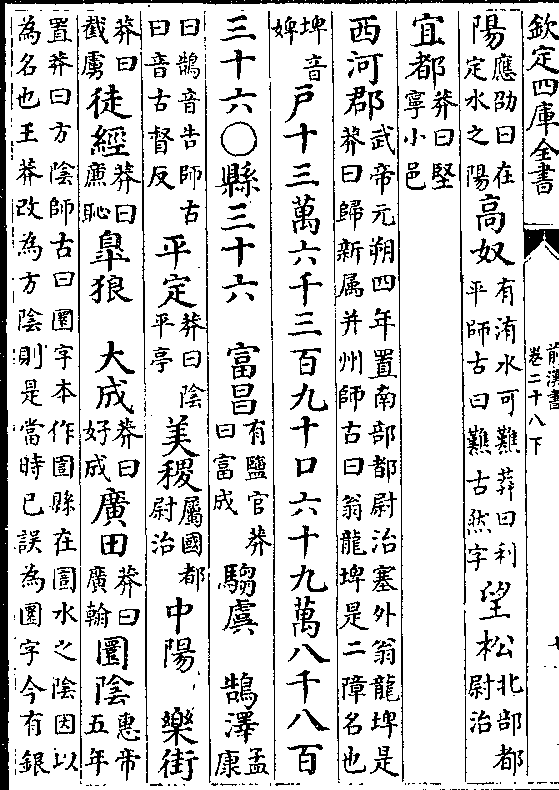 欽定四庫全書 前漢書 卷二十八下
陽應劭曰在定水之陽高奴有洧水可難莽曰利平師古曰難古然字望松北部都尉治
宜都莽曰堅寧小邑
西河郡武帝元朔四年置南部都尉治塞外翁龍埤是莽曰歸新属并州師古曰翁龍埤是二障名也
埤音婢戶十三萬六千三百九十口六十九萬八千八百
三十六○縣三十六 富昌有鹽官莽曰富成騶虞 鵠澤孟康
曰鵠音告師古曰音古督反平定莽曰陰平亭美稷屬國都尉治中陽 樂街
莽曰截虜徒經莽曰廉恥臯狼 大成莽曰好成廣田莽曰廣翰圜陰惠帝五年
置莽曰方陰師古曰圜字本作圁縣在圁水之陰因以為名也王莽改為方陰則是當時已誤為圜字今有銀